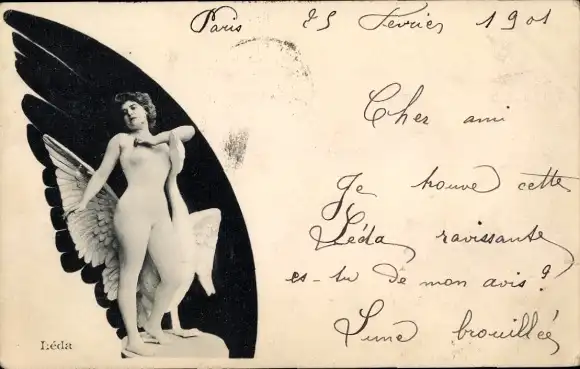 Paris 25 Fevrier 1901
Cher ami
Je trouve cette
Léda ravissante
es-tu de mon avis?
Lune brouillée
Léda